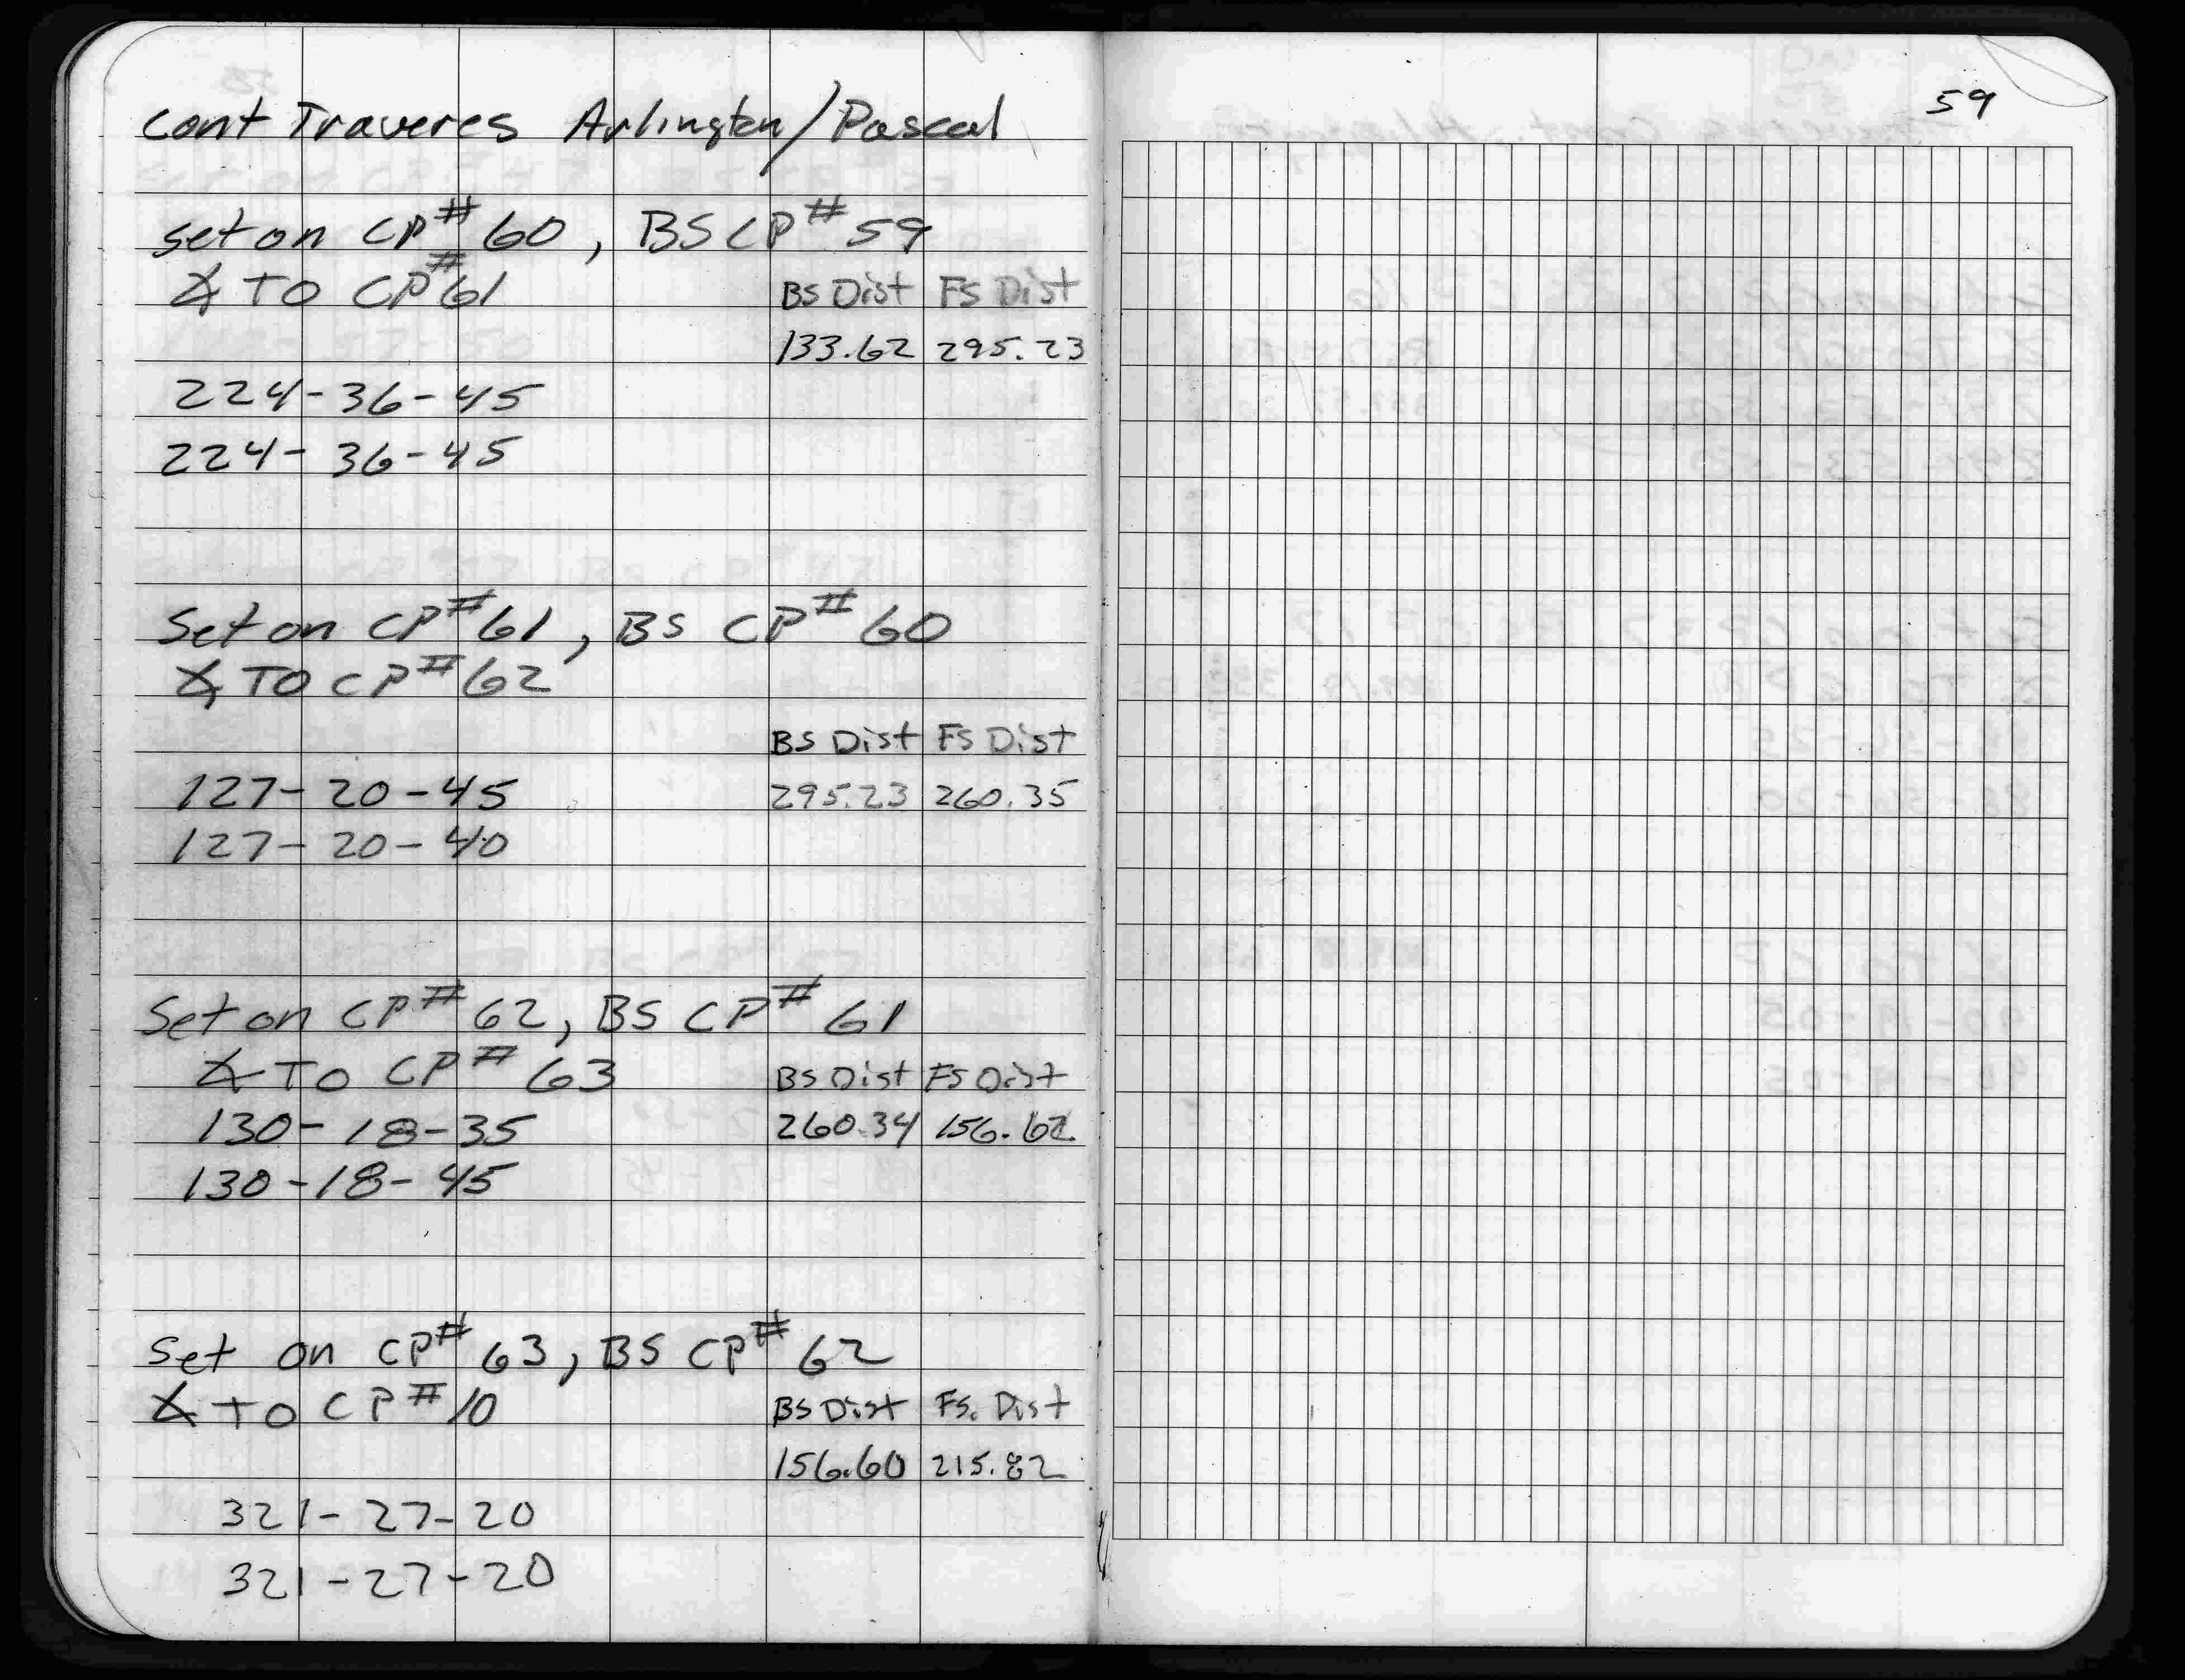 cont Traveres Arlington/Pascal
set on CP# 60, BS CP# 59
∡ TO CP# 61 BS Dist FS Dist
133.62 295.23
224-36-45
224-36-45
Set on CP# 61, BS CP# 60
∡ TO CP# 62
BS Dist FS Dist
127-20-45 295.23 260.35
127-20-40
Set on CP# 62, BS CP# 61
∡ TO CP# 63 BS Dist FS Dist
130-18-35 260.34 156.62
130-18-45
Set on CP# 63, BS CP# 62
∡ TO CP# 10 BS Dist FS. Dist
156.60 215.82
321-27-20
321-27-20
59